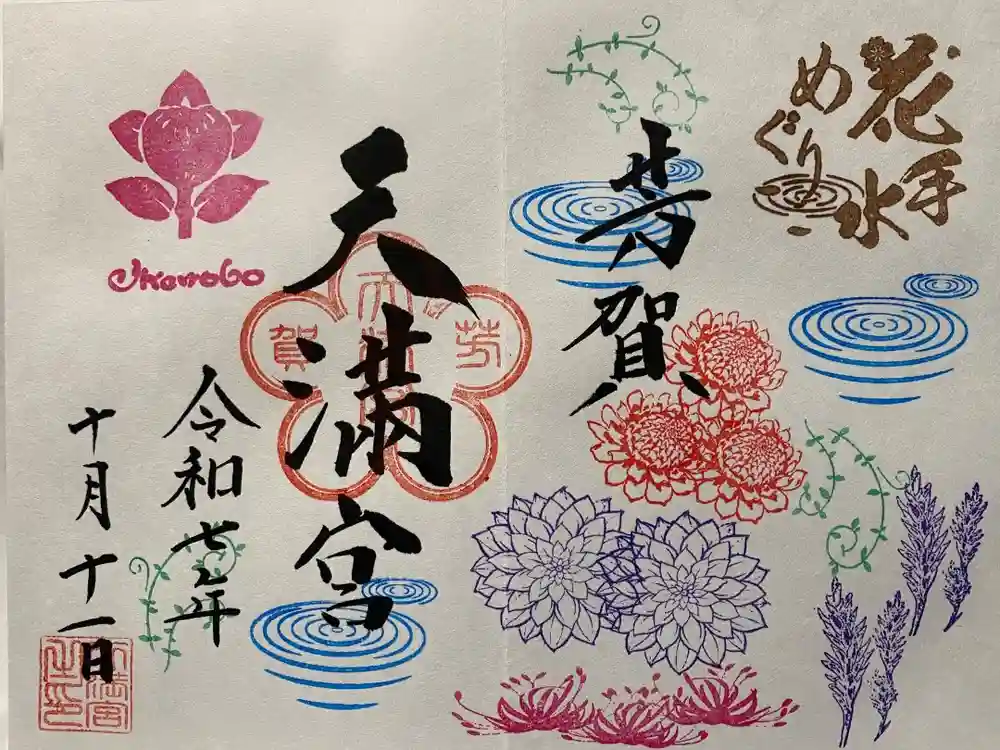 花手水
めぐり
芳賀
天満宮
令和七年
十月十一日
Ikenobo
賀
芳